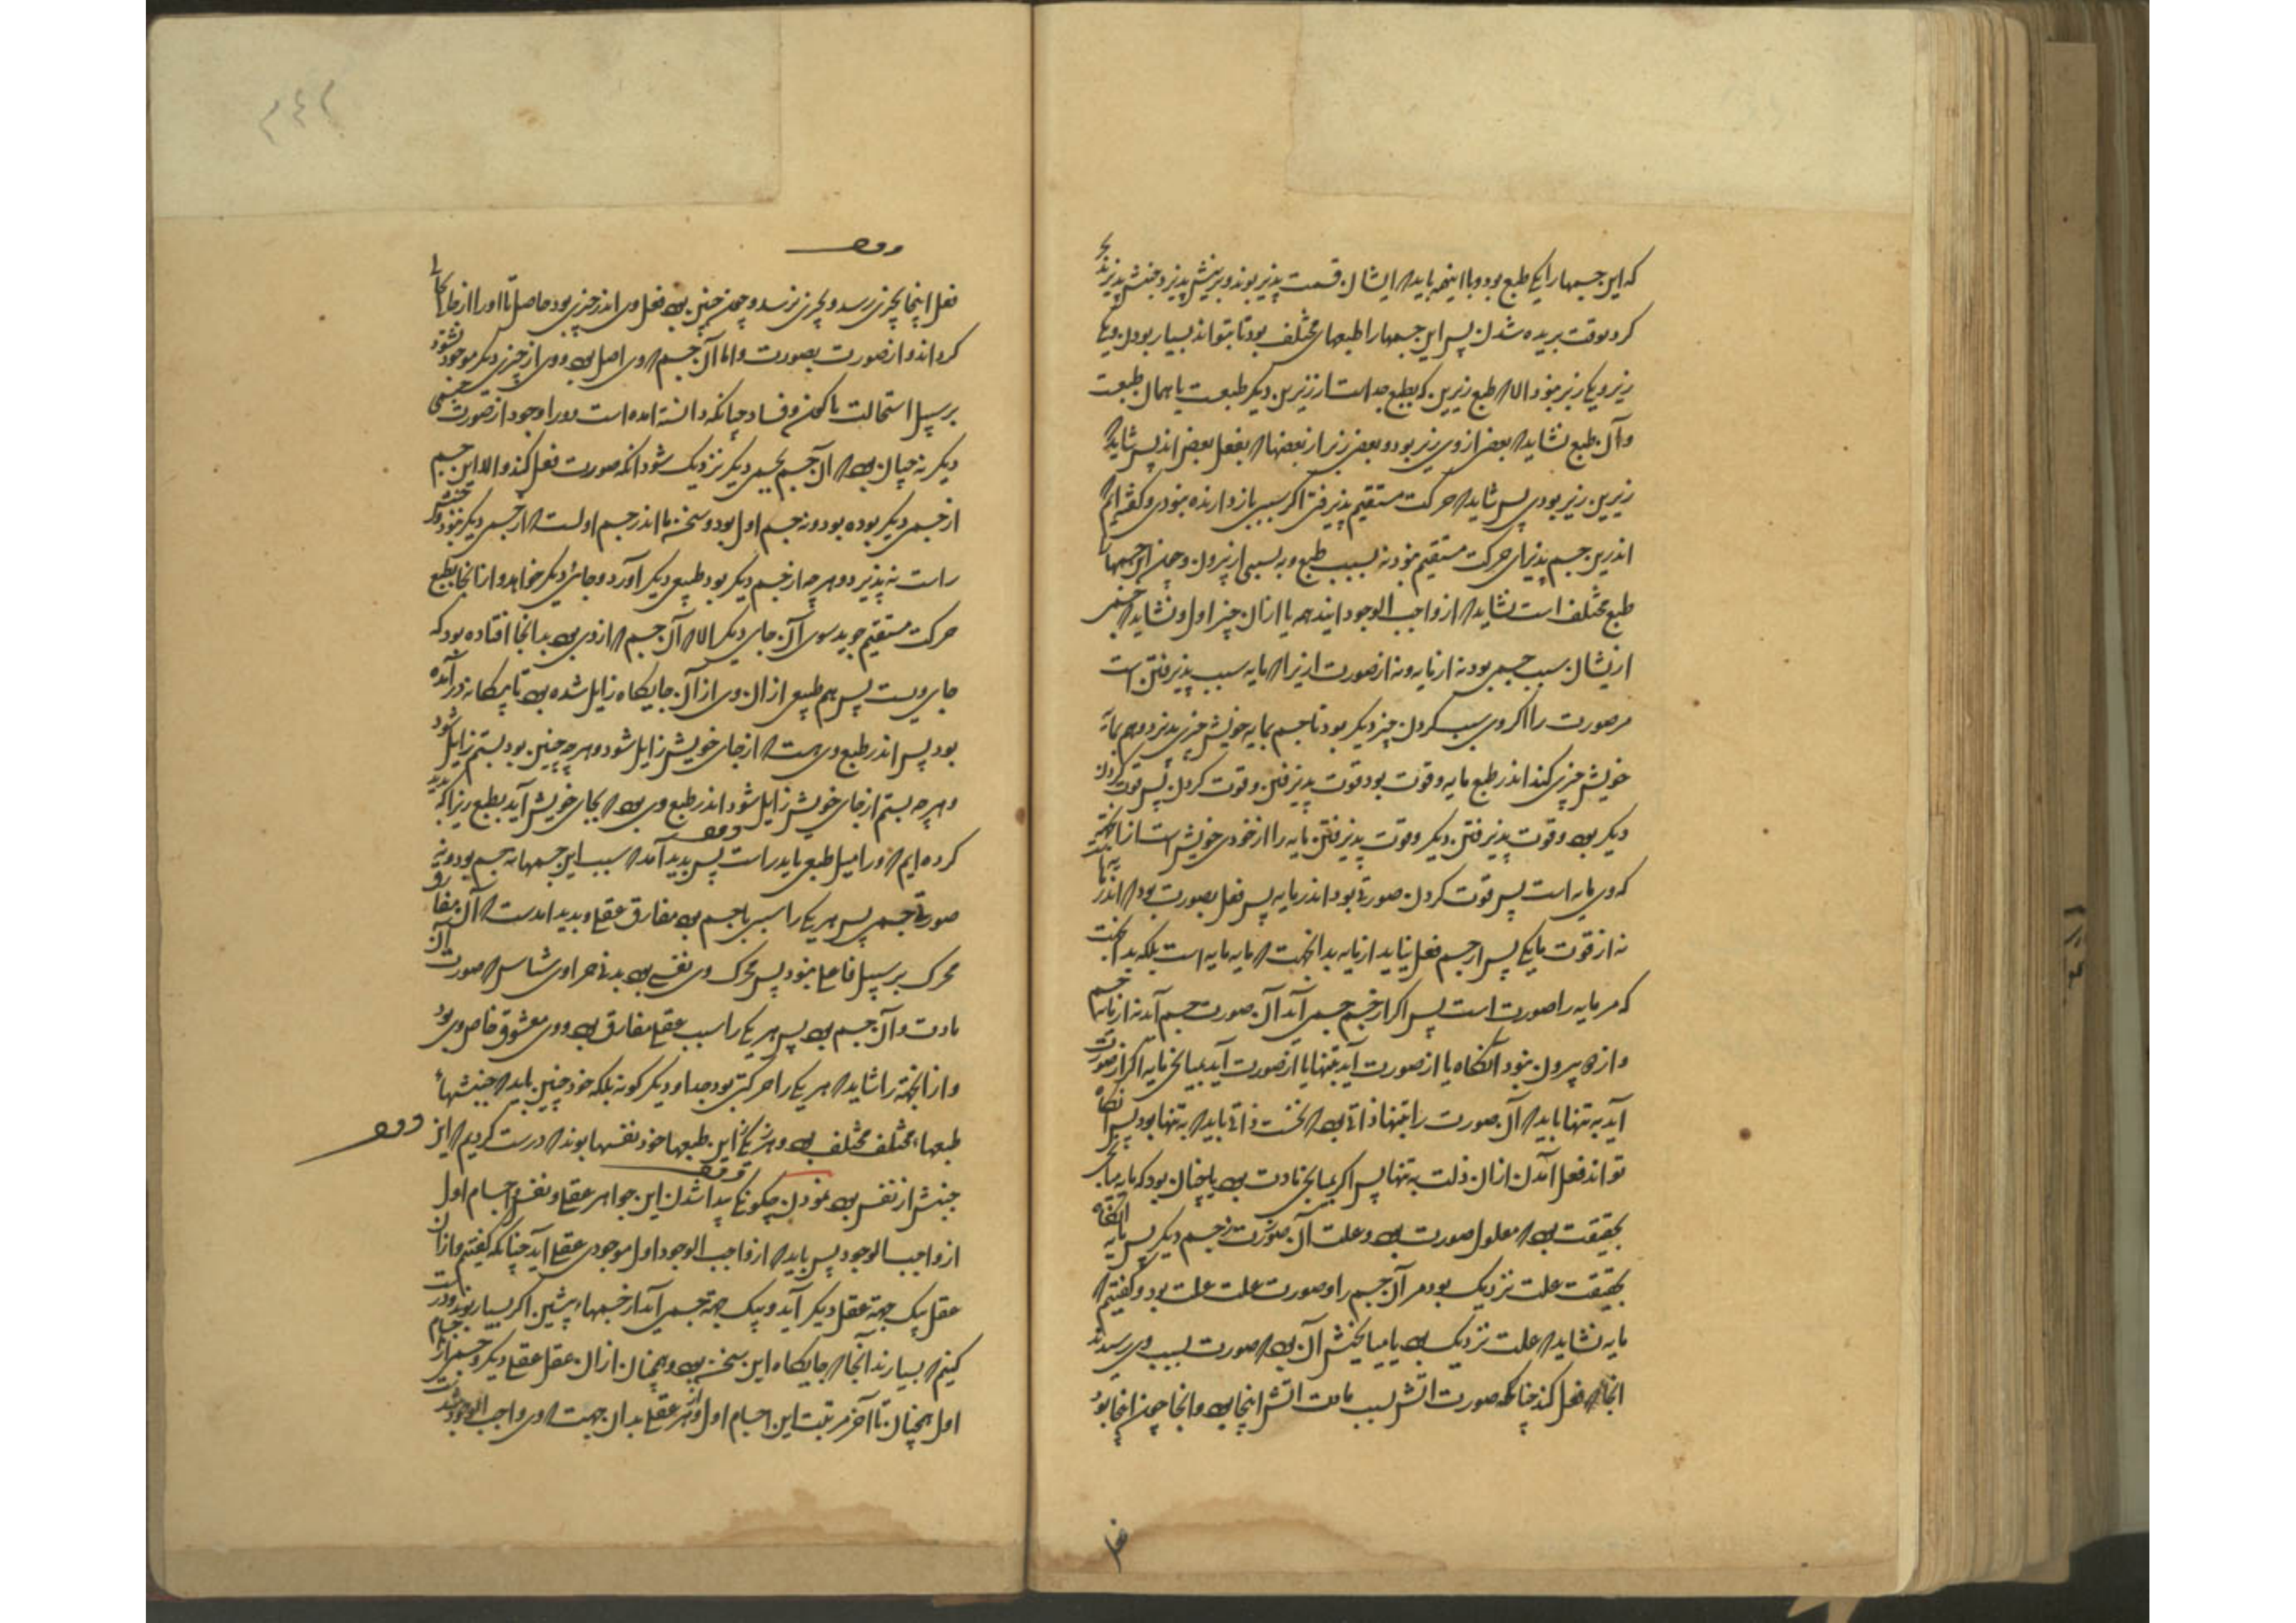 که این جسمها را یکی طبع بود و با اینهمه باید که ایشان قسمت پذیر بوند و برینش پذیر و جنبش پذیرند بحر
کرد بوقت بریده شدن پس این جسمها را طبعهای مختلف بود تا بتواند بسیار بودن و یکی
زیر و یکی زبر نبود الا که طبع زیرین که بطبع جداست از زبرین دیگر طبعست یا همان طبعت
و آن طبع نشاید که بعضی از وی زیر بود و بعضی زبر از بعضها که بفعل بعض اند پس شاید که
زیرین زبر بودی پس شاید که حرکت مستقیم پذیرفتی اگر سببی بازدارنده نبودی و گفته ایم که
اندرین جسم پذیرای حرکت مستقیم نبود نه بسبب طبع و نه بسببی از بیرون و چون این جسمها را
طبع مختلف است نشاید که از واجب الوجود ایند همه یا از آن چیز اول و نشاید که جسمی
ازیشان سبب جسمی بود نه از مایه و نه از صورت ازیرا که مایه سبب پذیرفتن است
مر صورت را اگر وی سبب کردن چیز دیگر بود تا جسم بمایه خویش چیزی پذیرد و هم بمایه
خویش چیزی کند اندر طبع مایه دو قوت بود قوت پذیرفتن و قوت کردن پس قوت کردن
دیگر بود و قوت پذیرفتن دیگر و قوت پذیرفتن مایه را از خودی خویش است از آنجهت
که وی مایه است پس قوت کردن صورتی بود اندر مایه پس فعل بصورت بود که اندر مایه
نه از قوت مایگی پس از جسم فعل نیاید از مایه بدانجهت که مایه مایه است بلکه بدانجهت
که مر مایه را صورت است پس اگر از جسم جسمی آید آن صورت جسم آید نه از مایه جسم
و از دو بیرون نبود آنگاه یا از صورت آید بتنها یا از صورت آید بمیانجی مایه اگر از صورت
آید به تنها باید که آن صورت را بتنها ذاتی بود که نخست ذاتی باید که به تنها بود پس آنگاه
تواند فعل آمدن از آن ذات به تنها پس اگر بمیانجی مادت بود یا چنان بود که مایه میانجی
بحقیقت بود که معلول صورت بود و علت آن صورت جسم دیگر پس مایه آنگاه
بحقیقت علت نزدیک بود مر آن جسم را و صورت علت علت بود و گفتیم که
مایه نشاید که علت نزدیک بود یا میانجیش آن بود که صورت بسبب وی رسد بد
انجا که فعل کند چنانکه صورت آتش بسبب مادت آتش اینجا بود و آنجا چون اینجا بود
فعل
فعل اینجا بچیزی رسد و بچیزی نرسد و چون چنین بود فعل وی اندر چیزی بود حاصل تا او را از حالی بحالی
گرداند و از صورت بصورت و اما آن جسم که وی اصل بود و وی از چیزی دیگر موجود نشود
بر سبیل استحالت یا کون و فساد چنانکه دانسته امده است ورا وجود از صورت جسمی
دیگر نه چنان بود که آن جسم بجسمی دیگر نزدیک شود انکه صورت فعل کند والا این جسم
از جسمی دیگر بوده بود و نه جسم اول بود و سخن ما اندر جسم اولست که از جسمی دیگر نبود و جنبش
راست نه پذیرد و هر چه از جسم دیگر بود طبعی دیگر آورد و جای دیگر خواهد و از انجا بطبع
حرکت مستقیم جوید سوی آن جای دیگر الا که آن جسم که از وی بود بدانجا افتاده بود که
جای ویست پس هم طبعی از آن وی از آن جایگاه زایل شده بود تا بیگانه در آمده
بود پس اندر طبع وی هست که از جای خویش زایل شود و هر چه چنین بود بستم زایل شود
و هر چه بستم از جای خویش زایل شود اندر طبع وی بود که بجای خویش آید بطبع زیراکه پدید
کرده ایم که ورا میل طبعی باید راست پس پدید آمد که سبب این جسمها نه جسم بود و نه
صورتی جسمی پس هر یکی را سببی نا جسم بود مفارق عقلی و پدید امدست که آن مفارق
محرک بر سبیل فاعلی نبود پس محرک وی نفسی بود بدنی مر او را شناس که صورت آن
مادت و آن جسم بود پس هر یکی را سبب عقلی مفارق بود و وی معشوق خاص وی بود
و از انجهت را شاید که هر یکی را حرکتی بود جدا و دیگر گونه بلکه خود چنین باید که جنبشهاء
طبعهاء مختلف مختلف بود و هر یکی این طبعها خود نفسها بوند که درست کردیم که این
جنبش از نفس بود نمودن چگونگی پیدا شدن این جواهر عقلی و نفسی و اجسام اول
از واجب الوجود پس باید که از واجب الوجود اول موجودی عقلی آید چنانکه گفتیم و از آن
عقل بیک جهة عقل دیگر آید و بیک جهة جسمی آید از جسمهاء پیشین اگر بسیار بوند و درست
کنیم که بسیارند آنجا که جایگاه این سخن بود و همچنان از آن عقل عقلی دیگر و جسمی از اجسام
اول همچنان تا آخر مرتبت این اجسام اول و هر عقلی بدان جهت که وی واجب الوجود شدست